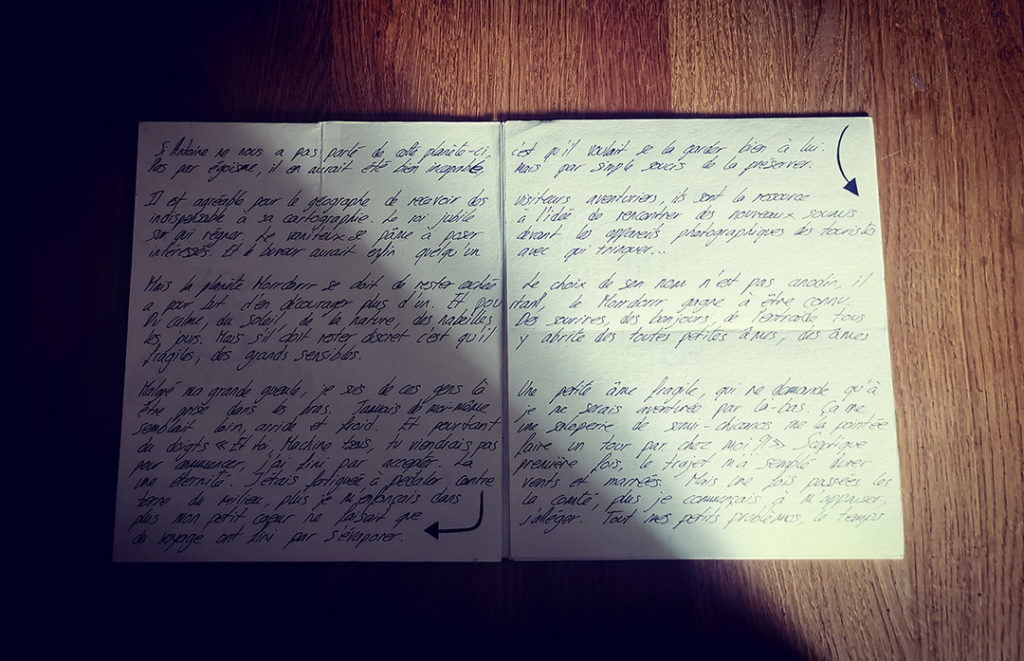 St Antoine ne nous a pas parlé de cette planète-ci, c'est qu'il voulait se la garder bien à lui.
Pas par égoïsme, il en aurait été bien incapable, mais par simple soucis de la préserver.
Il est agréable pour le géographe de recevoir des visiteurs aventuriers, ils sont la ressource
indispensable à sa cartographie. Le roi jubile à l'idée de rencontrer des nouveaux soumis
sur qui régner. Le vaniteux se pâme à poser devant les appareils photographiques des touristes
intéressés. Et le buveur aurait enfin quelqu'un avec qui trinquer...
Mais la planète Morrdorrr se doit de rester cachée. Le choix de son nom n'est pas anodin, il
a pour but d'en décourager plus d'un. Et pourtant, le Morrdorrr gagne à être connu.
Du calme, du soleil, de la nature, des nabeilles. Des sourires, des bonjours, de l'entraide tous
les jours. Mais s'il doit rester discret c'est qu'il y abrite des toutes petites âmes, des âmes
fragiles, des grands sensibles.
Malgré ma grande gueule, je suis de ces gens là. Une petite âme fragile, qui ne demande qu'à
être prise dans les bras. Jamais de moi-même je ne serais aventurée par là-bas. Ça me
semblait loin, arride et froid. Et pourtant une saloperie de semi-chicanos me l'a pointée
du doigts « Et toi, Machine, tu viendrais pas faire un tour par chez moi ?! » Sceptique
pour commencer, j'ai fini par accepter. La première fois, le trajet m'a semblé durer
une éternité. J'étais fatiguée à pédaler contre vents et marées. Mais une fois passées les
terre du milieu, plus je m'enfonçais dans la comté, plus je commençais à m'appaiser,
plus mon petit cœur ne faisait que s'alléger. Tout mes petits problèmes, le temps
du voyage ont fini par s'évaporer.